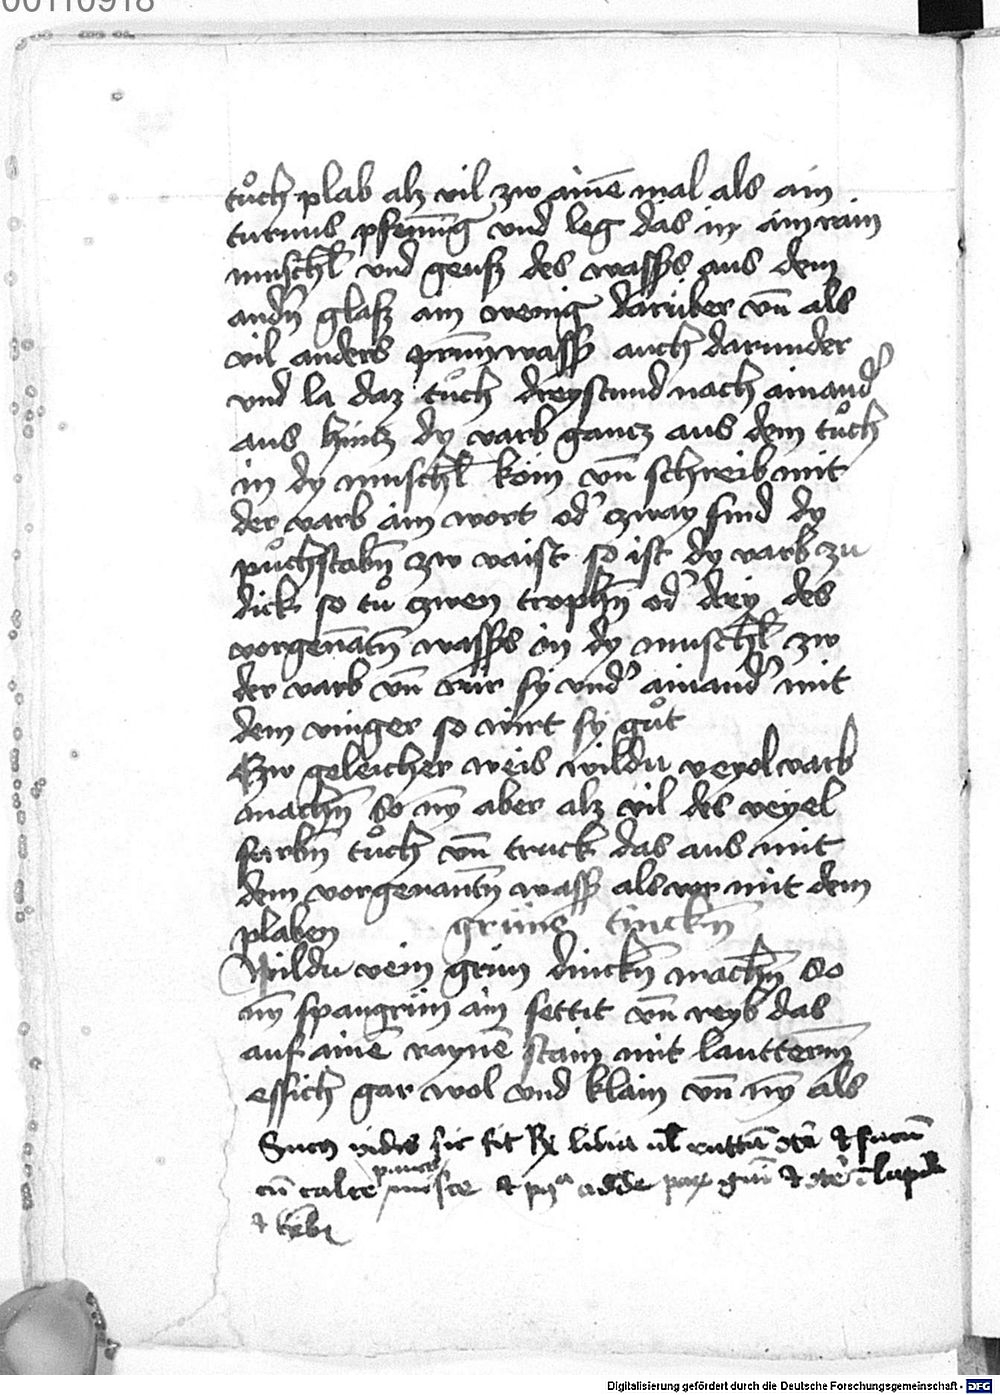 00110918
tůch plab alz vil zw ainē mal als ain
turnus pfennīg vnd leg das in ain rain
muschl̄ vnd geusz des wassˢs aus dem
andn̄ glasz ain wenig darüber vn̄ als
vil anders prunwassˢ auch darunder
vnd la daz tůch dreystund nach ainandˢ
aus hintz dy varb gancz aus dem tůch
in dy muschl̄ köm vn̄ schreib mit
der varb ain wort odˢ zway sind dy
půchstabn̄ zw vaist so ist dy varb zu
dick so tů zwen trophn̄ odˢ drey des
vorgenātn̄ wassˢs in dy muschl̄ zw
der varb vn̄ rür sy vndˢ ainandˢ mit
dem vinger so wirt sy gůt
Zw geleicher weis wildu veyol varb
machn̄ So nȳ aber alz vil des veyel
farbn̄ tůch vn̄ truck das aus mit
dem vorgenantn̄ wassˢ als vor mit dem
plaben grüne tinckn̄
Wildu vein grün dinckn̄ machn̄ So
nȳ spangrün ain settit vn̄ reyb das
auf ainē raynē stain mit lautterm̄
essich gar wol vnd klain vn̄ nȳ als
viridis sic fit Rx
cū calce &  adde &
&
Digitalisierung gefördert durch die Deutsche Forschungsgemeinschaft - DFG